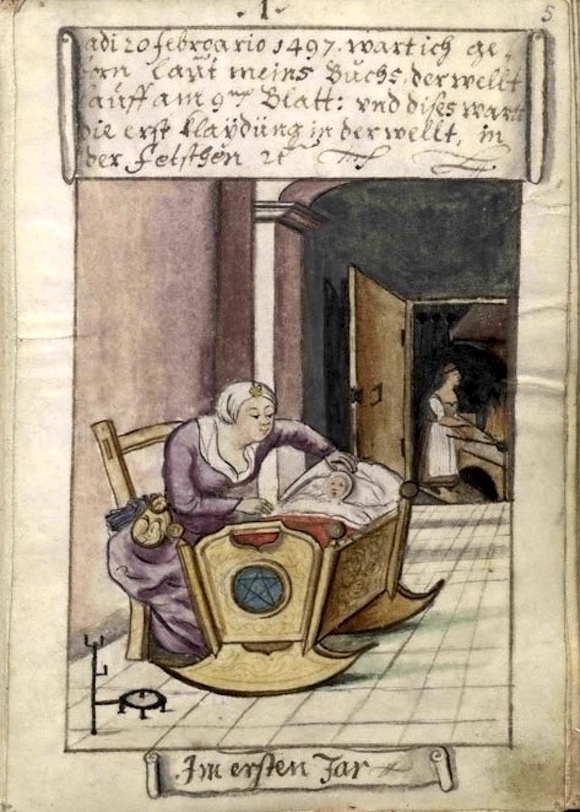 · 1 ·
5
adi 20 febroario 1497. wart ich ge,
orn laut meins Buchs, der wellt
auff am 9ten Blatt: vnd dises wartt
die erst klaydung in der wellt, in
der fetschen
Im ersten Jar